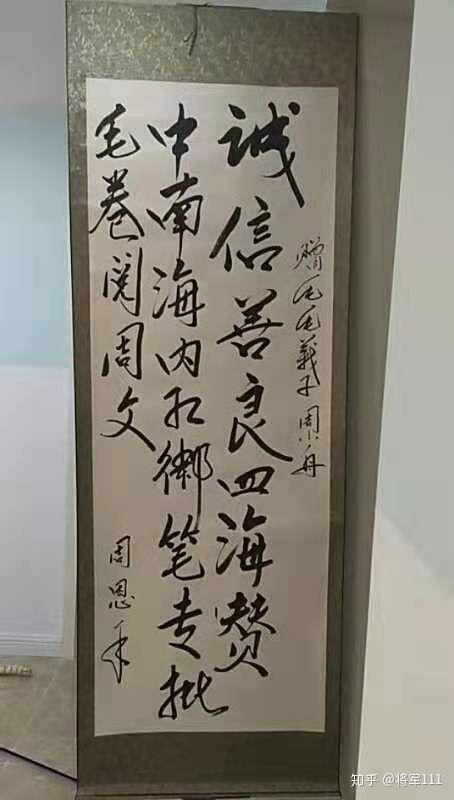 贈毛毛義子周舟
誠信善良四海赞
中南海内红御笔专批
毛卷阅周文
周恩来
知乎 @将军111